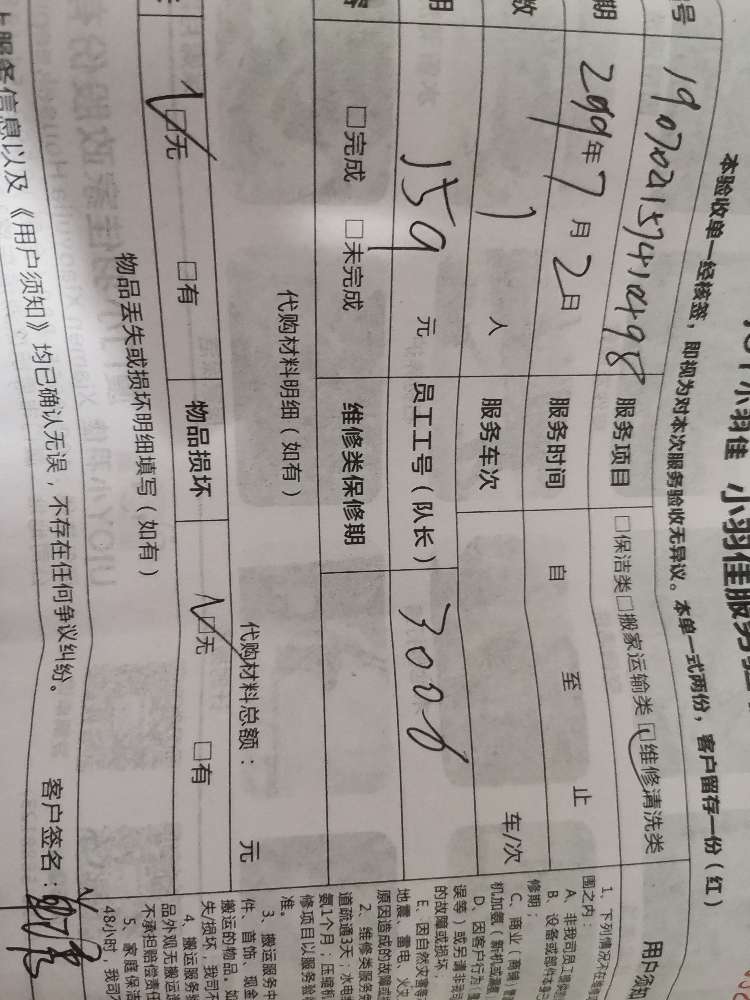 小羽佳 小羽佳服务验
本验收单一经核签，即视为对本次服务验收无异议。本单一式两份，客户留存一份（红）
号 190702157410498 服务项目 □保洁类□搬家运输类□维修清洗类
期 2019年7月2日 服务时间 自 至 止
数 1 人 服务车次 车/次
用 159 元 员工工号（队长） 3006
□完成 □未完成 维修类保修期
代购材料明细（如有） 代购材料总额： 元
□无 □有 物品损坏 □无 □有
物品丢失或损坏明细填写（如有）
上服务信息以及《用户须知》均已确认无误，不存在任何争议纠纷。 客户签名：
用户须知
1、下列情况不在维
围之内：
A、非我司员工
B、设备或部件本身
修期；
C、商业（商铺）
机加氨（新机或漏氨
D、因客户行为（
误等）或另请非我司
的故障或损坏；
E、因自然灾害等
地震、雷电、火灾
原因造成的故障或
2、维修类服务免
道疏通3天；水电
氨1个月；压缩机
修项目以服务验
准。
3、搬运服务中
件、首饰、现金
搬运的物品，如
失/损坏，我司不
4、搬运服务验
品外观无搬运
不承担赔偿责任
5、家庭保洁
48小时，我司不